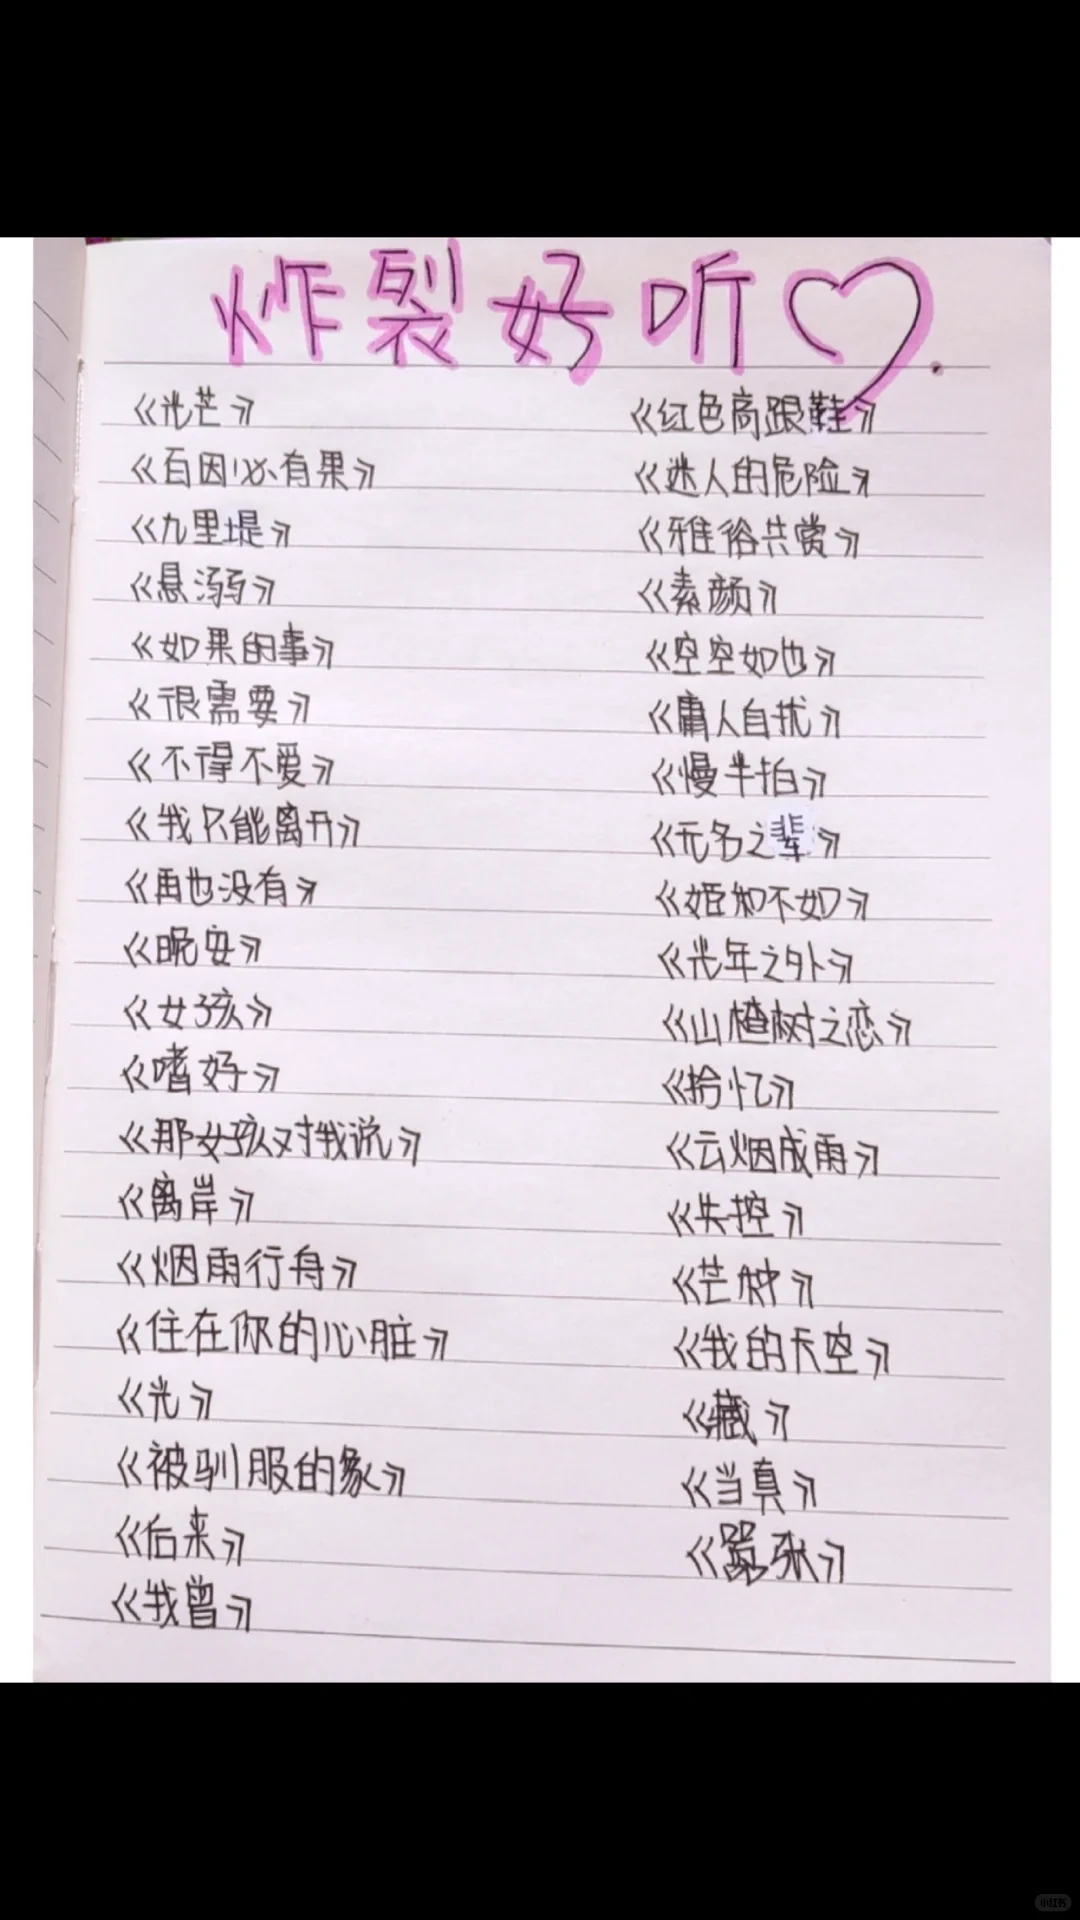 炸裂好听
《光芒》
《百因必有果》
《九里堤》
《悬溺》
《如果的事》
《很需要》
《不得不爱》
《我只能离开》
《再也没有》
《晚安》
《女孩》
《嗜好》
《那女孩对我说》
《离岸》
《烟雨行舟》
《住在你的心脏》
《光》
《被驯服的象》
《后来》
《我曾》
《红色高跟鞋》
《迷人的危险》
《雅俗共赏》
《素颜》
《空空如也》
《庸人自扰》
《慢半拍》
《无名之辈》
《姬和不如》
《光年之外》
《山楂树之恋》
《拾忆》
《云烟成雨》
《失控》
《芒种》
《我的天空》
《藏》
《当真》
《嚣张》
小红书